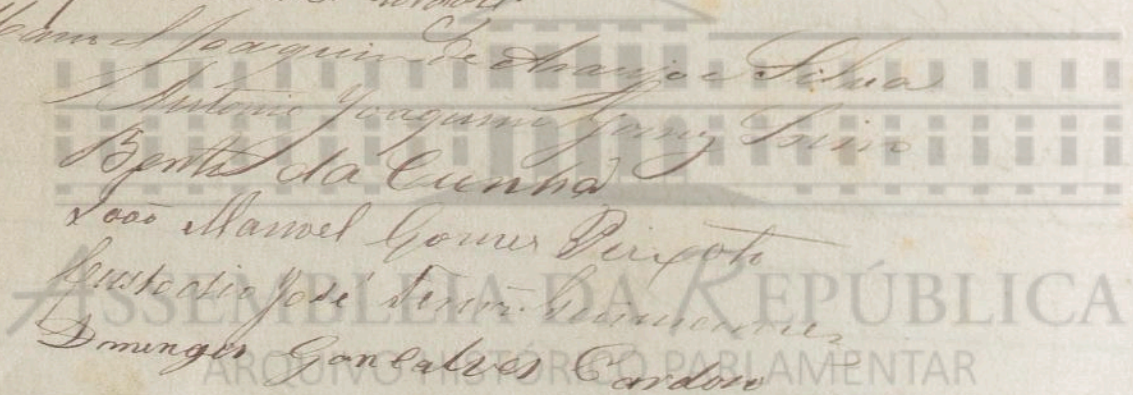 Joaquim de Araujo e Silva
Antonio Joaquim
Bento da Cunha
João Manoel Gomes Peixoto
Custodio José
Dmingos Gonsalves Cardoso
ASSEMBLEIA DA REPÚBLICA
ARQUIVO HISTÓRICO PARLAMENTAR